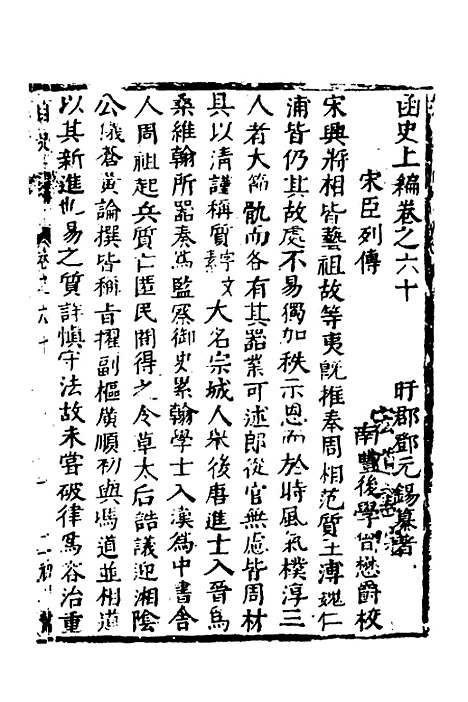 函史上編卷之六十
盱郡鄧元錫纂著
南豐後學 懋爵校
宋臣列傳
宋興將相皆藝祖故等夷旣推奉周相范質王溥魏仁
浦皆仍其故處不易獨加秩示恩而於時風氣樸淳三
人者大節骩而各有其器業可述郎從官無慮皆周材
具以清謹稱質字文素大名宗城人舉後唐進士入晉爲
桑維翰所器奏爲監察御史累翰學士入漢爲中書舍
人周祖起兵質亡匿民間得之令草太后誥議迎湘陰
公儀蒼黃論撰皆稱旨擢副樞廣順初與馮道並相道
以其新進也易之質詳慎守法故未嘗破律爲容治重